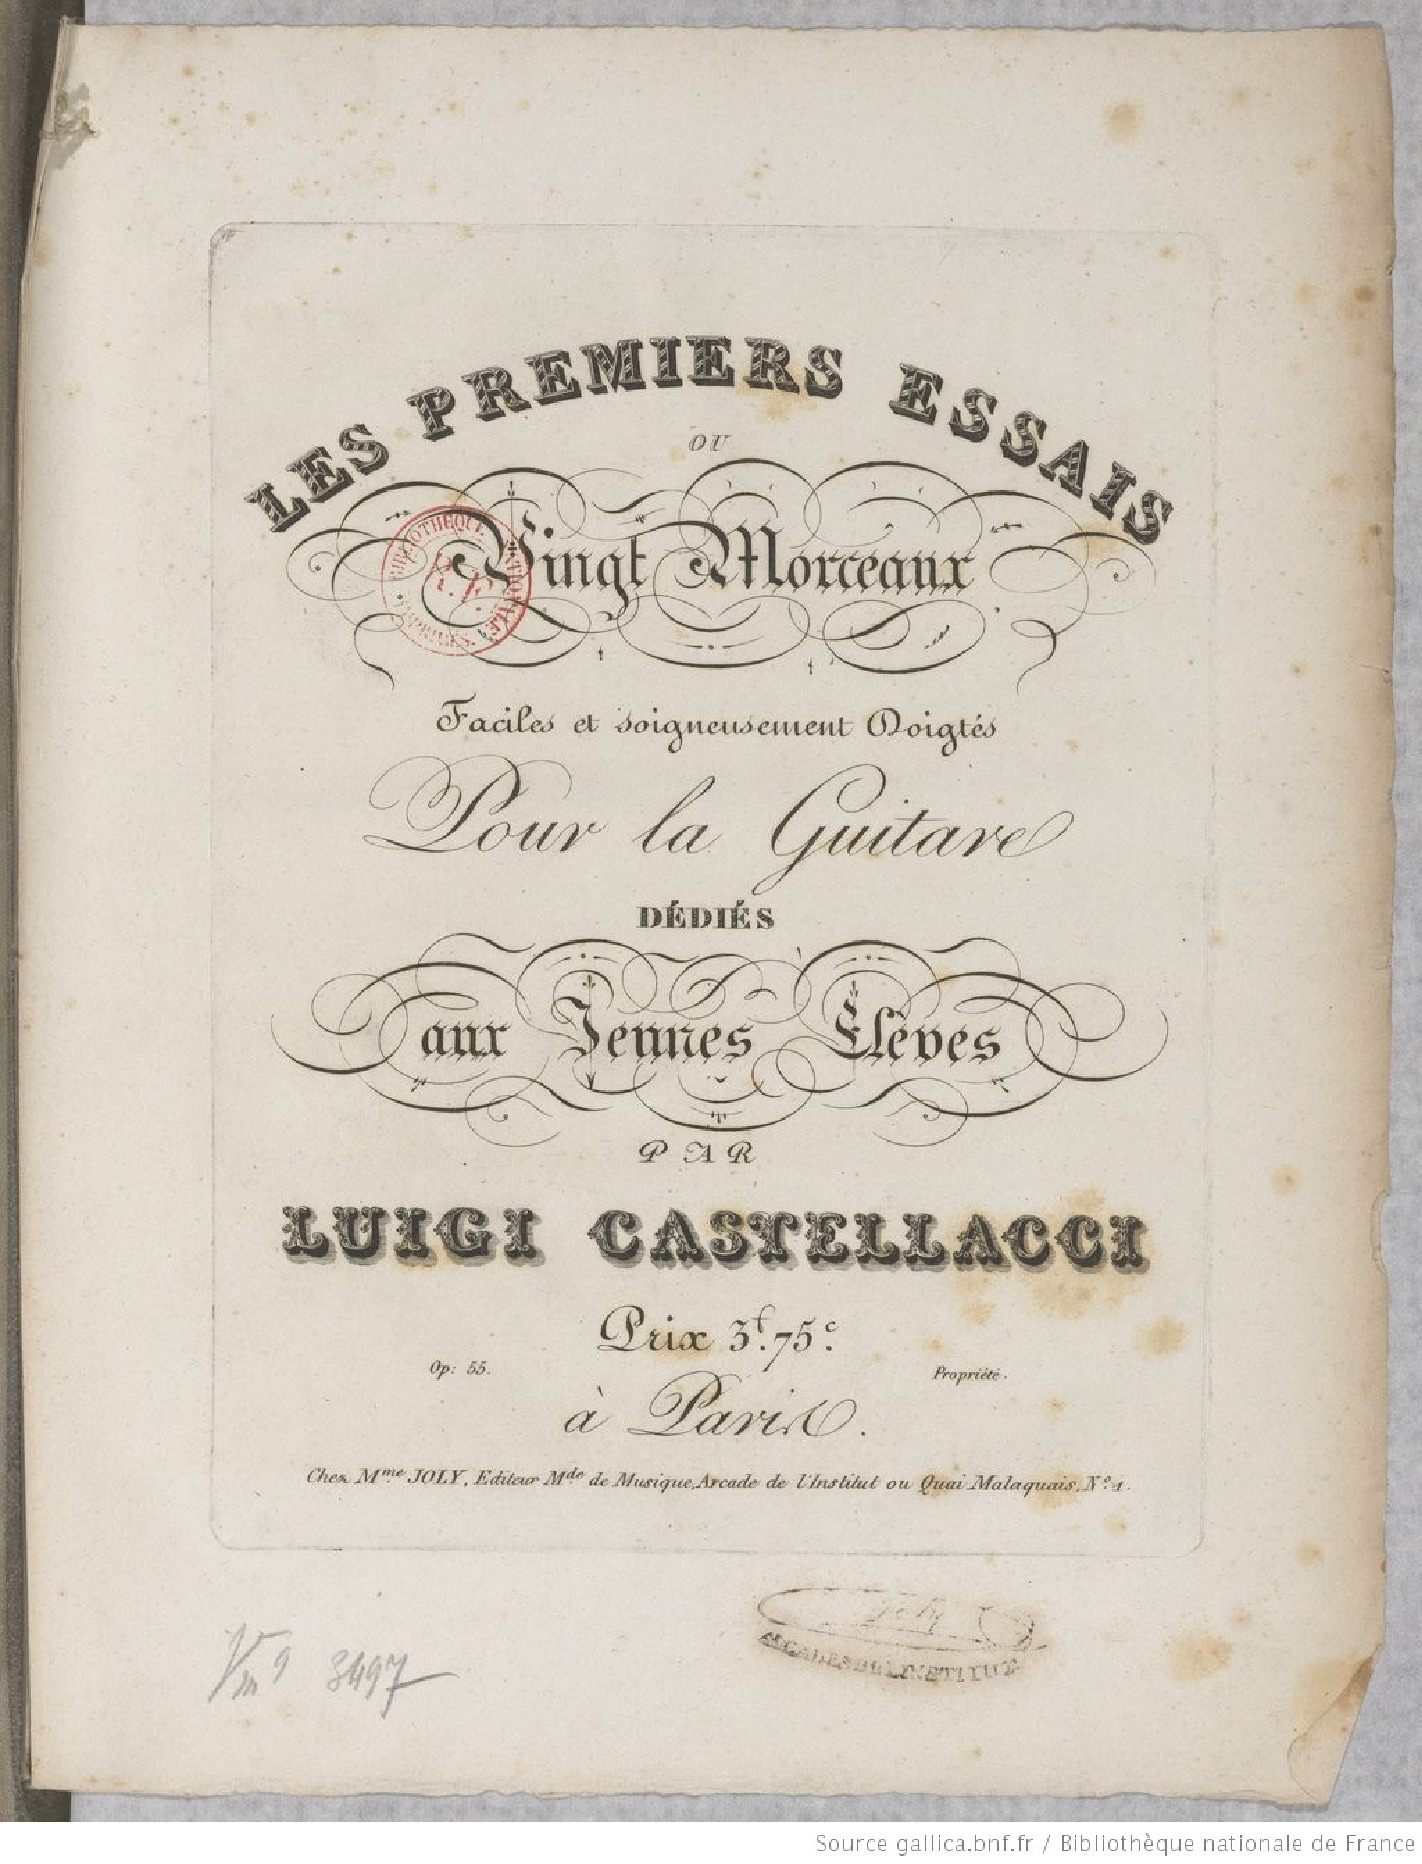 LES PREMIERS ESSAIS
OU
Vingt Morceaux
Faciles et soigneusement Doigtés
Pour la Guitare
DÉDIÉS
aux Jeunes Élèves
PAR
LUIGI CASTELLACCI
Prix 3f. 75c.
Op: 55.
Propriété.
à Paris.
Chez Mme. JOLY, Editeur Mde. de Musique, Arcade de l'Institut ou Quai Malaquais, No. 1.
BIBLIOTHÈQUE NATIONALE
R.F.
IMPRIMÉS
Joly
ARCADES DE L'INSTITUT
Vm9 3497
Source gallica.bnf.fr / Bibliothèque nationale de France